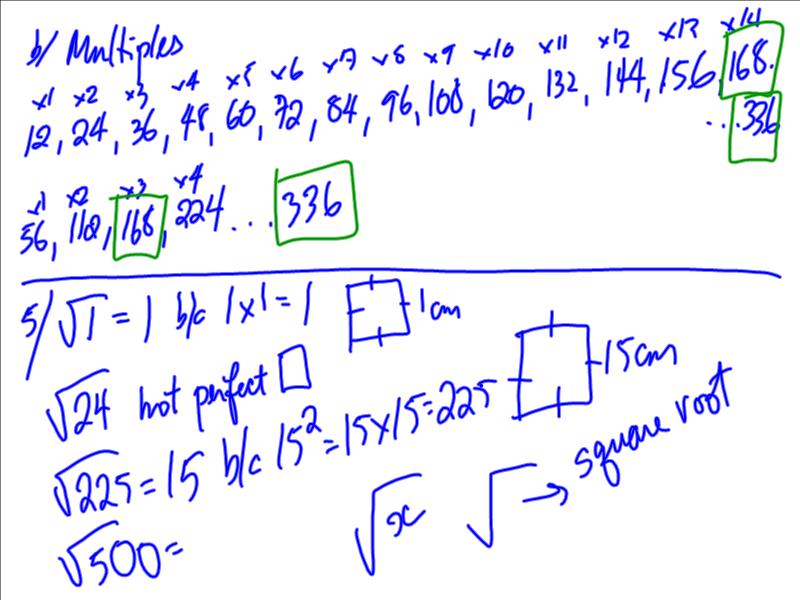 b/ Multiples
x1 x2 x3 x4 x5 x6 x7 x8 x9 x10 x11 x12 x13 x14
12, 24, 36, 48, 60, 72, 84, 96, 108, 120, 132, 144, 156, 168.
...336
x1 x2 x3 x4
56, 112, 168, 224... 336
5/ √1 = 1 b/c 1x1 = 1 1cm
√24 not perfect □
√225 = 15 b/c 15² = 15x15 = 225 15cm
√x √ → square root
√500 =